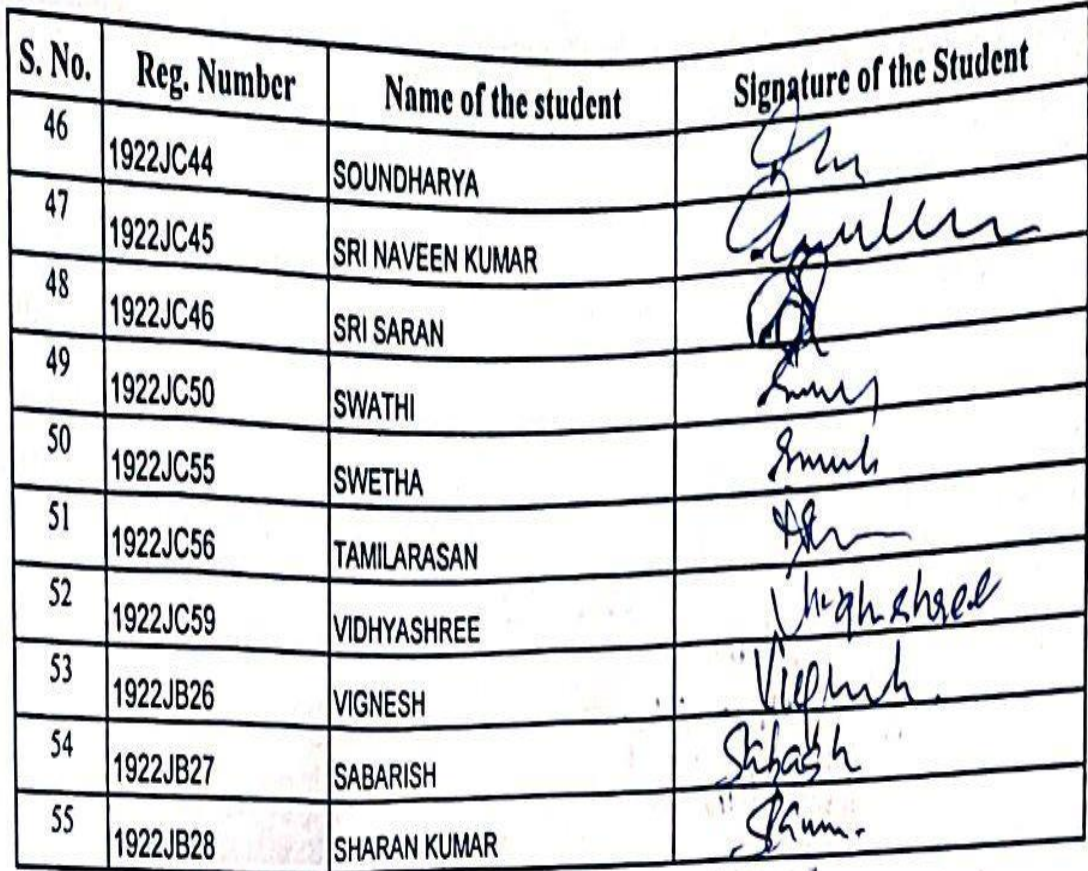 S. No. Reg. Number Name of the student Signature of the Student
46 1922JC44 SOUNDHARYA
47 1922JC45 SRI NAVEEN KUMAR
48 1922JC46 SRI SARAN
49 1922JC50 SWATHI
50 1922JC55 SWETHA
51 1922JC56 TAMILARASAN
52 1922JC59 VIDHYASHREE
53 1922JB26 VIGNESH
54 1922JB27 SABARISH
55 1922JB28 SHARAN KUMAR